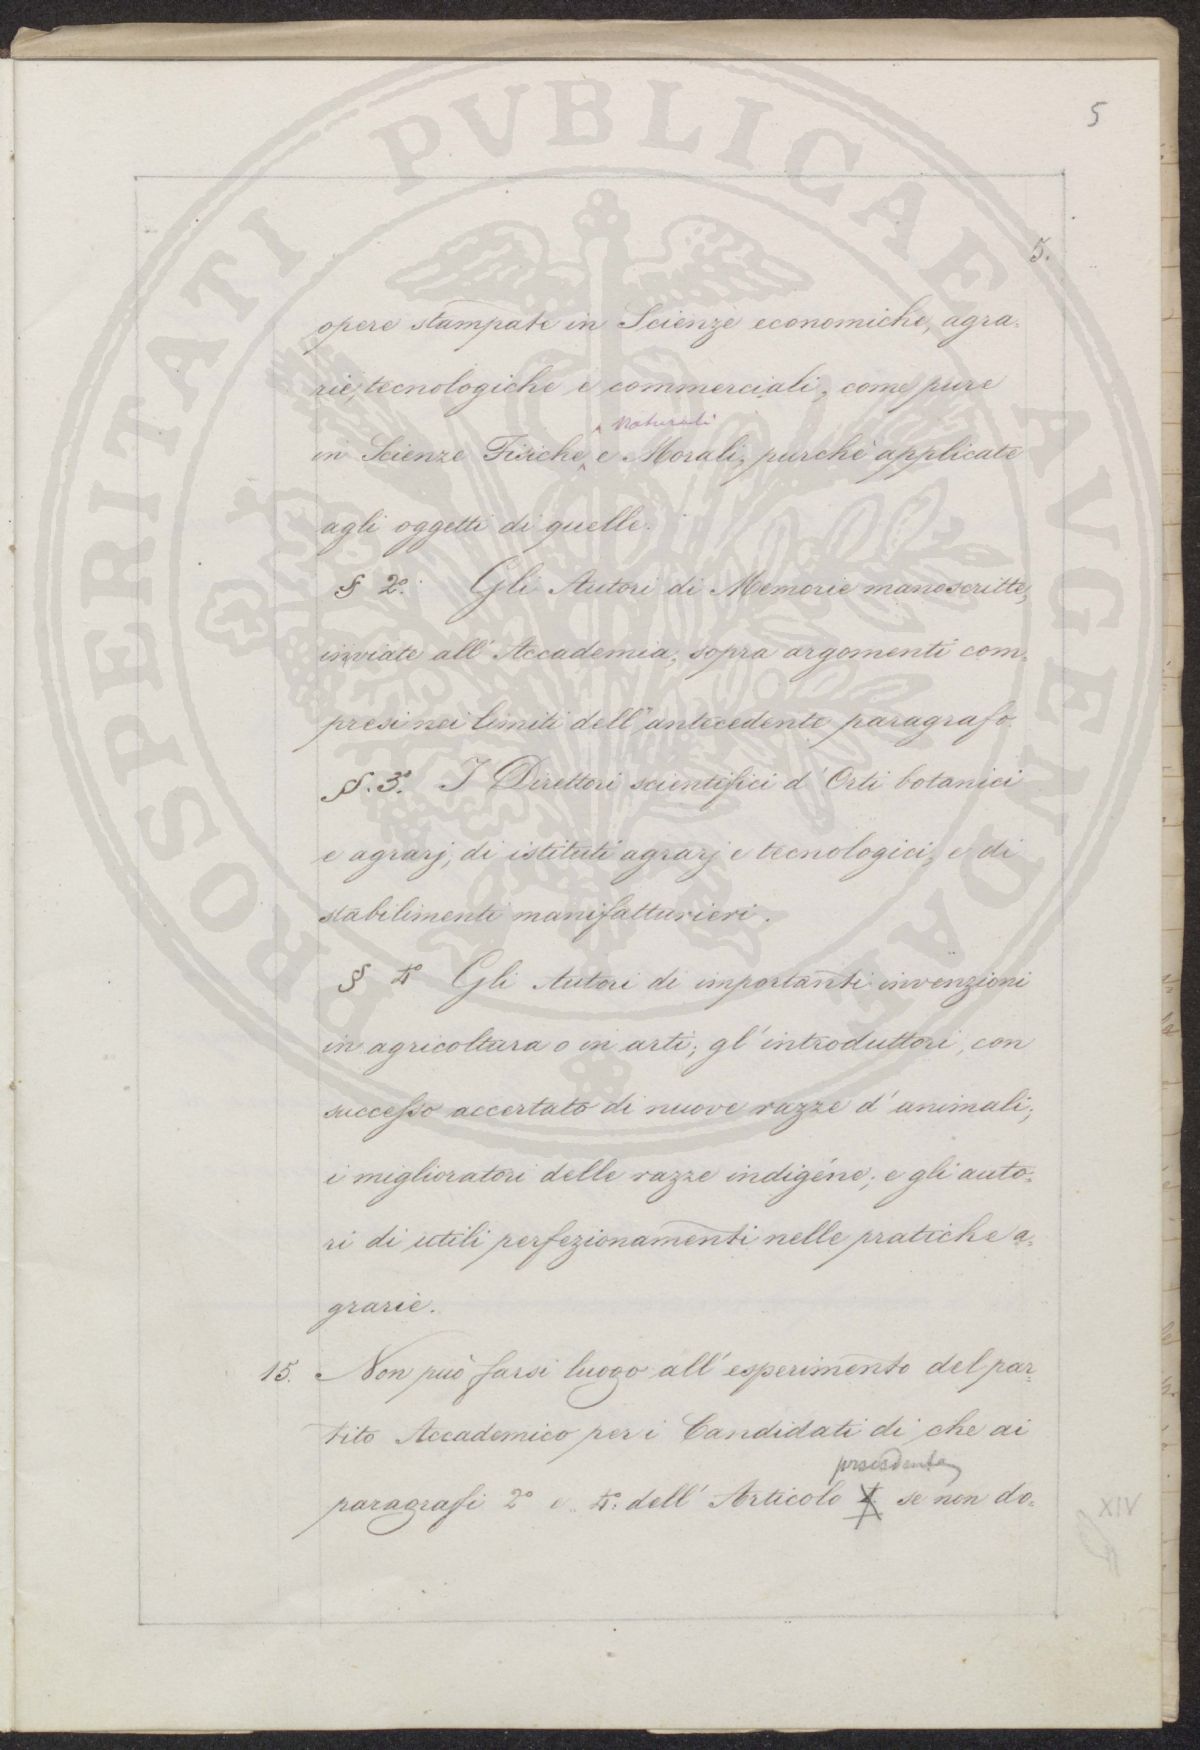 5
5.
opere stampate in Scienze economiche, agra=
rie, tecnologiche e commerciali, come pure
naturali
in Scienze Fisiche, e Morali, purchè applicate
agli oggetti di quelle.
§ 2º. Gli Autori di Memorie manoscritte,
inviate all'Accademia, sopra argomenti com=
presi nei limiti dell'antecedente paragrafo.
§. 3º. I Direttori scientifici d'Orti botanici
e agrarj, di istituti agrarj e tecnologici, e di
stabilimenti manifatturieri.
§ 4º Gli Autori di importanti invenzioni
in agricoltura o in arti; gl'introduttori, con
successo accertato di nuove razze d'animali;
i miglioratori delle razze indigéne; e gli auto=
ri di utili perfezionamenti nelle pratiche a=
grarie.
15. Non può farsi luogo all'esperimento del par=
tito Accademico per i Candidati di che ai
precedente
paragrafi 2º e 4º. dell'Articolo se non do=
XIV
PROSPERITATI PVBLICAE AVGENDAE